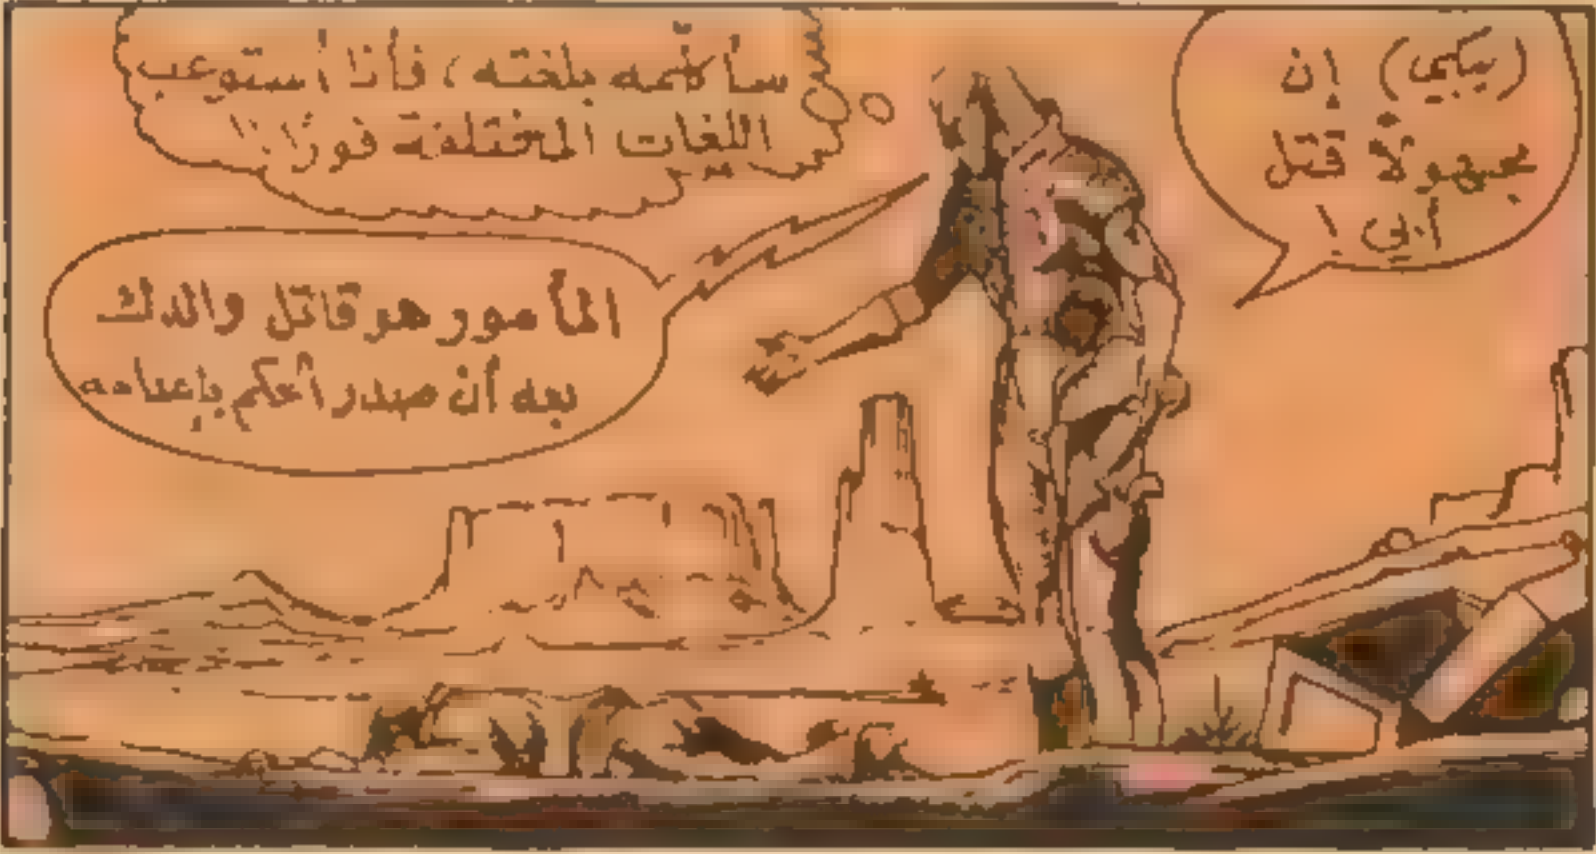 (سكيي) إن
مجهولاً قتل
أبي !
سأكلمه بلغته ، فأنا أستوعب
اللغات المختلفة فورًا !
المأمور هو قاتل والدك
بعد أن صدر الحكم بإعدامه